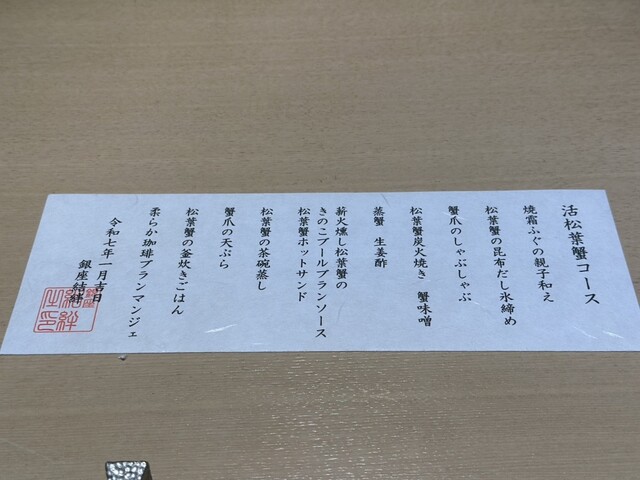 活松葉蟹コース
焼霜ふぐの親子和え
松葉蟹の昆布だし氷締め
蟹爪のしゃぶしゃぶ
松葉蟹炭火焼き 蟹味噌
蒸蟹 生姜酢
薪火燻し松葉蟹の
きのこブールブランソース
松葉蟹ホットサンド
松葉蟹の茶碗蒸し
蟹爪の天ぷら
松葉蟹の釜炊きごはん
柔らか珈琲ブランマンジェ
令和七年一月吉日
銀座結絆